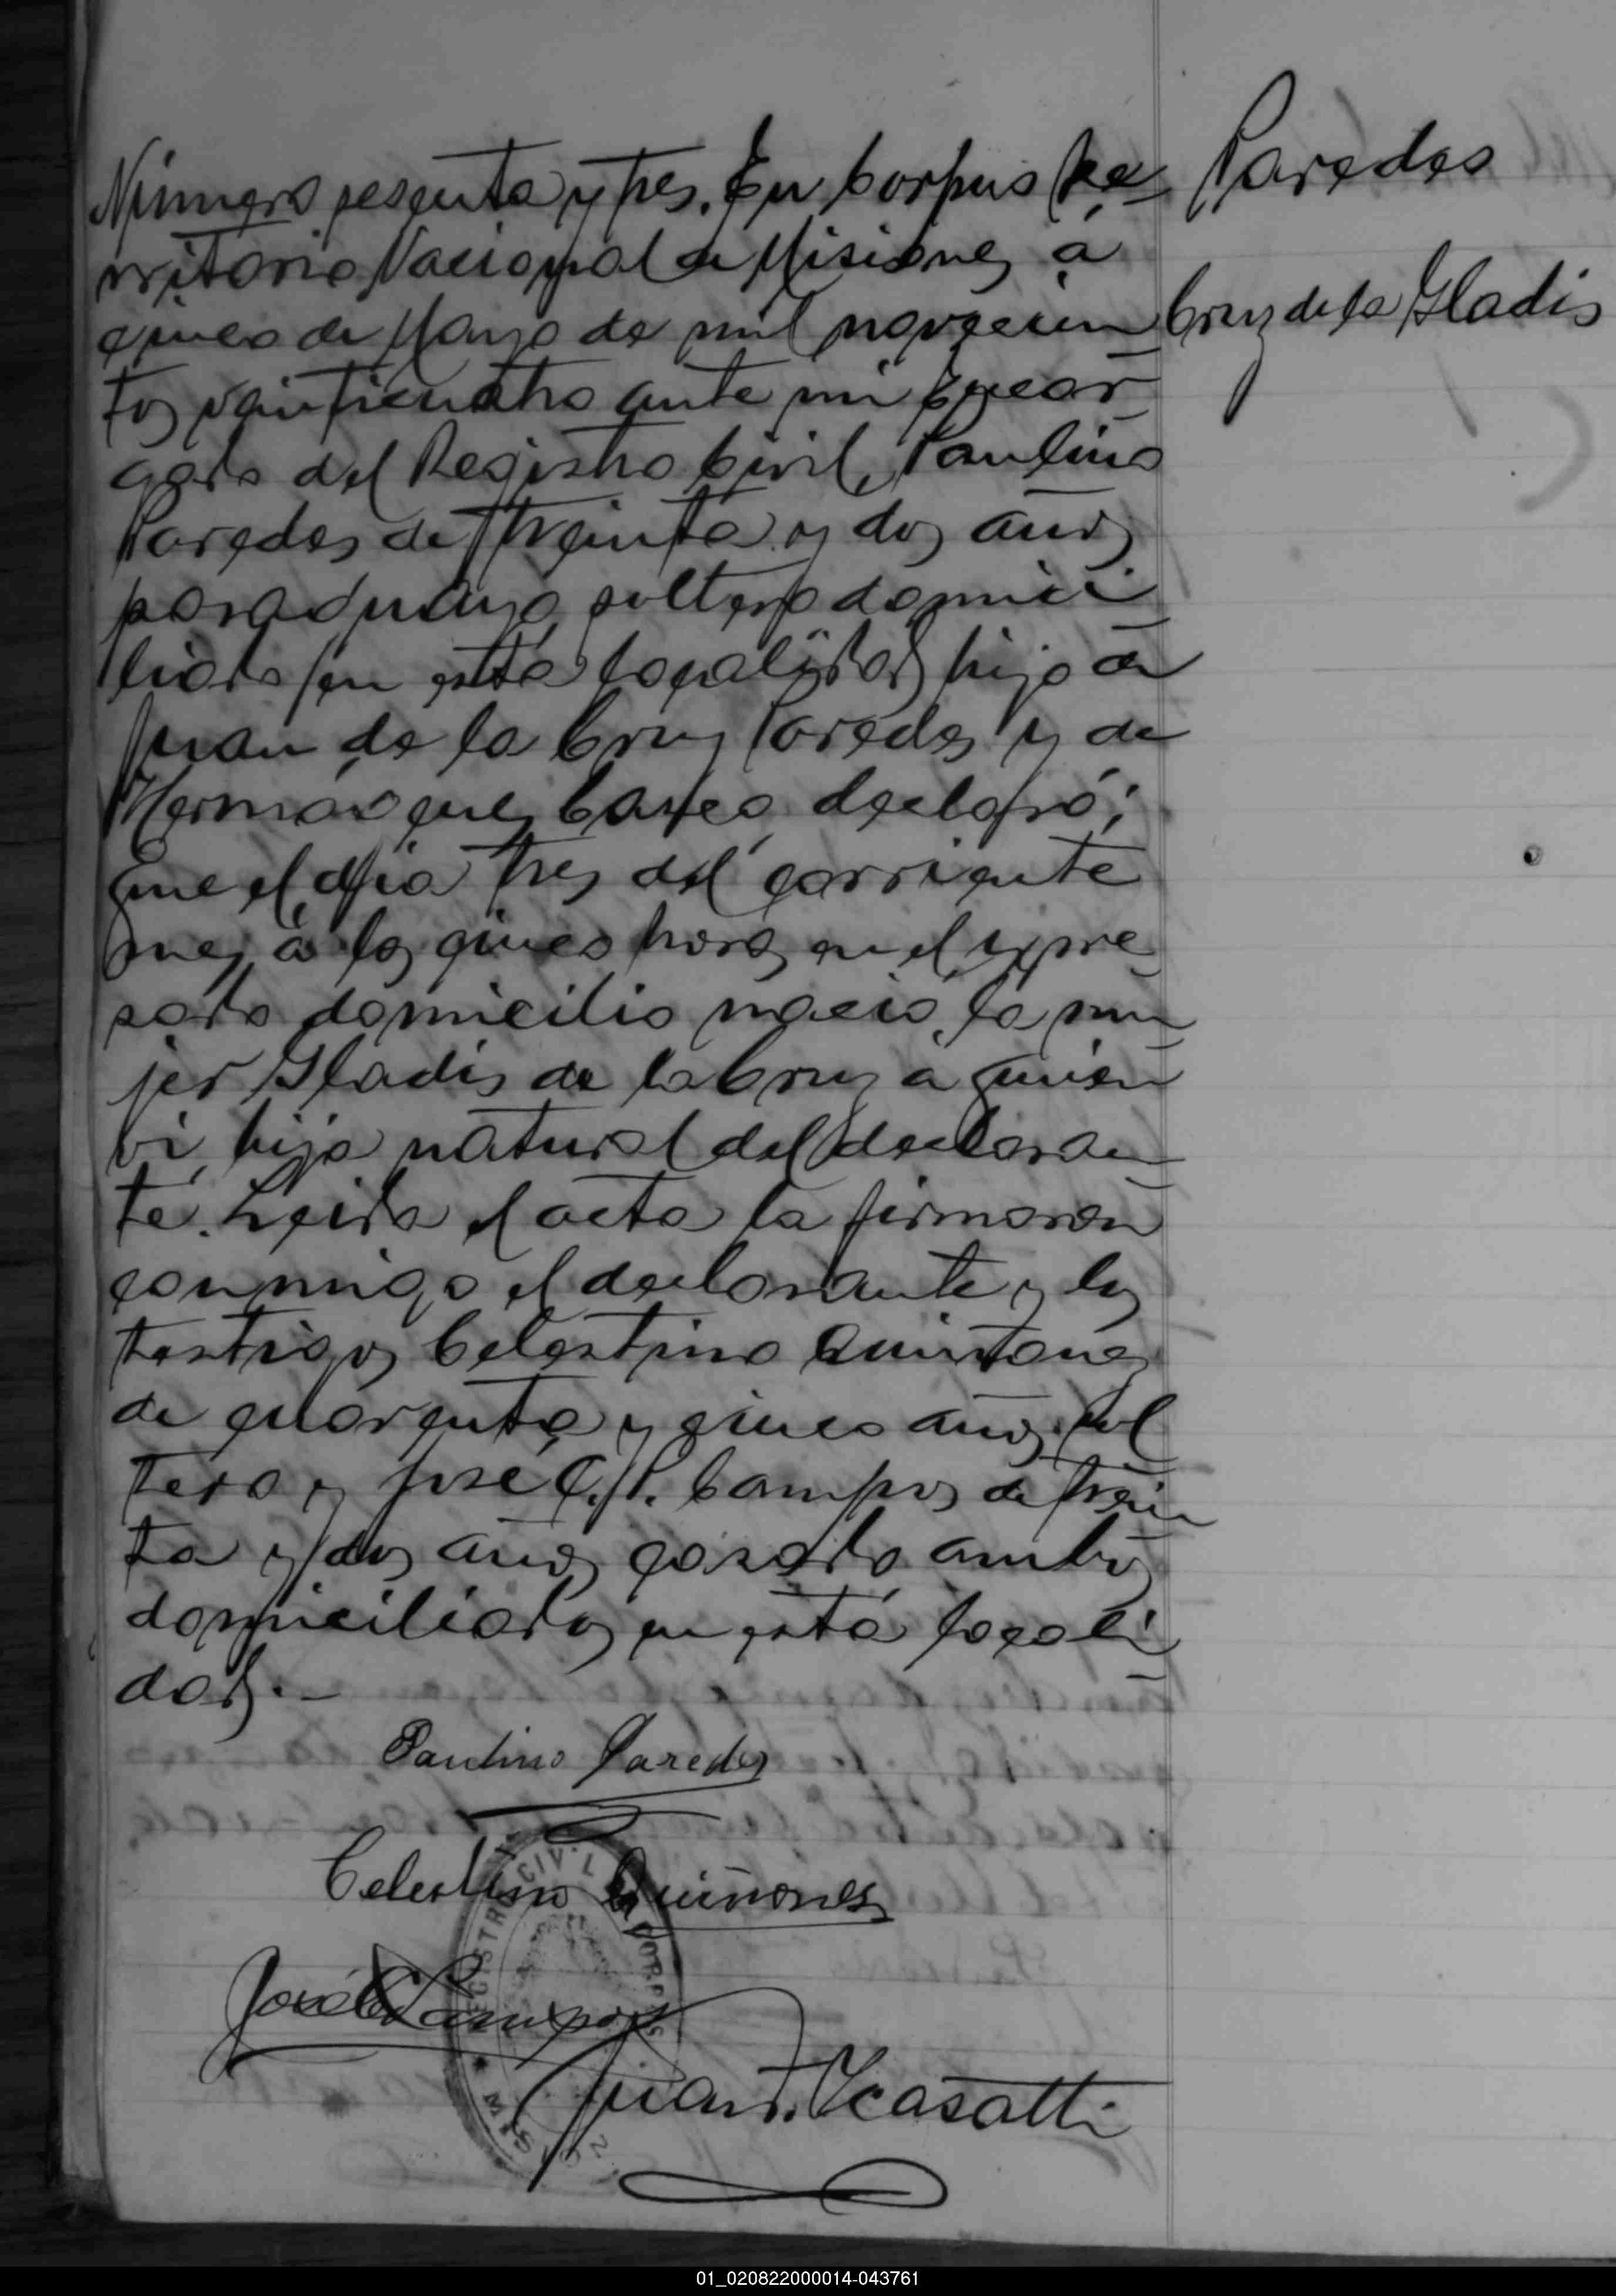 Número sesenta y tres. En Corpus Te-
rritorio Nacional de Misiones, a
cinco de Marzo de mil novecien
tos veinticuatro ante mi Encar-
gado del Registro Civil, Paulino
Paredes de treinta y dos años
paraguayo, soltero domici-
liado en esta localidad, hijo de
Juan de la Cruz Paredes y de
declaró;
Que el día tres del corriente
mes, a las cinco horas en el expre-
sado domicilio nació la mu-
jer Gladis de la Cruz a quien
vi, hija natural del declaran-
te. Leida el acta la firmaron
conmigo el declarante y los
testigos Celestino Quiñones
de cuarenta y cinco años, sol
tero y José C. P. Campos de trein-
ta y dos años casado ambos
domiciliados en esta locali-
dad.–
Paredes
Cruz de la Gladis
Paulino Paredes
Celestino Quiñones
José C. P. Campos
Juan T. Casatti
REGISTRO CIVIL CORPUS
MISIONES
01_020822000014-043761